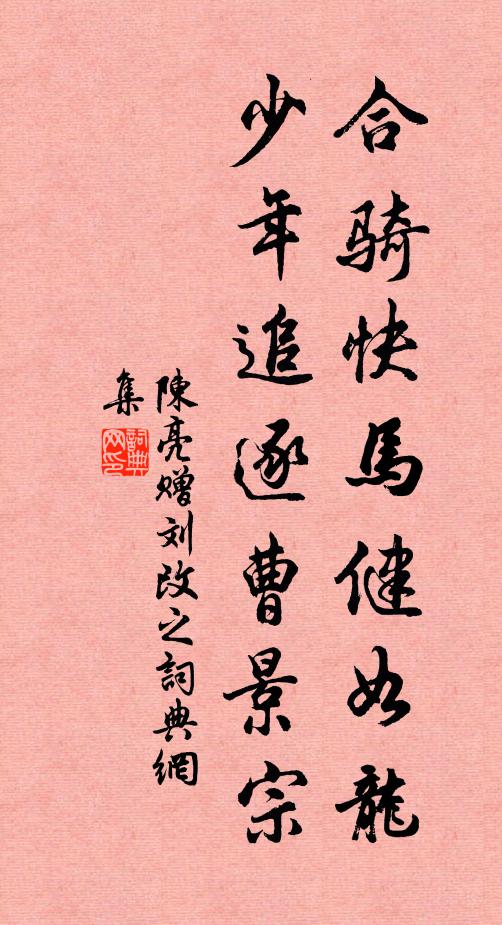 合騎快馬健如龍
少年追逐曹景宗
陳亮贈刘改之詞典網
集
詞典网印